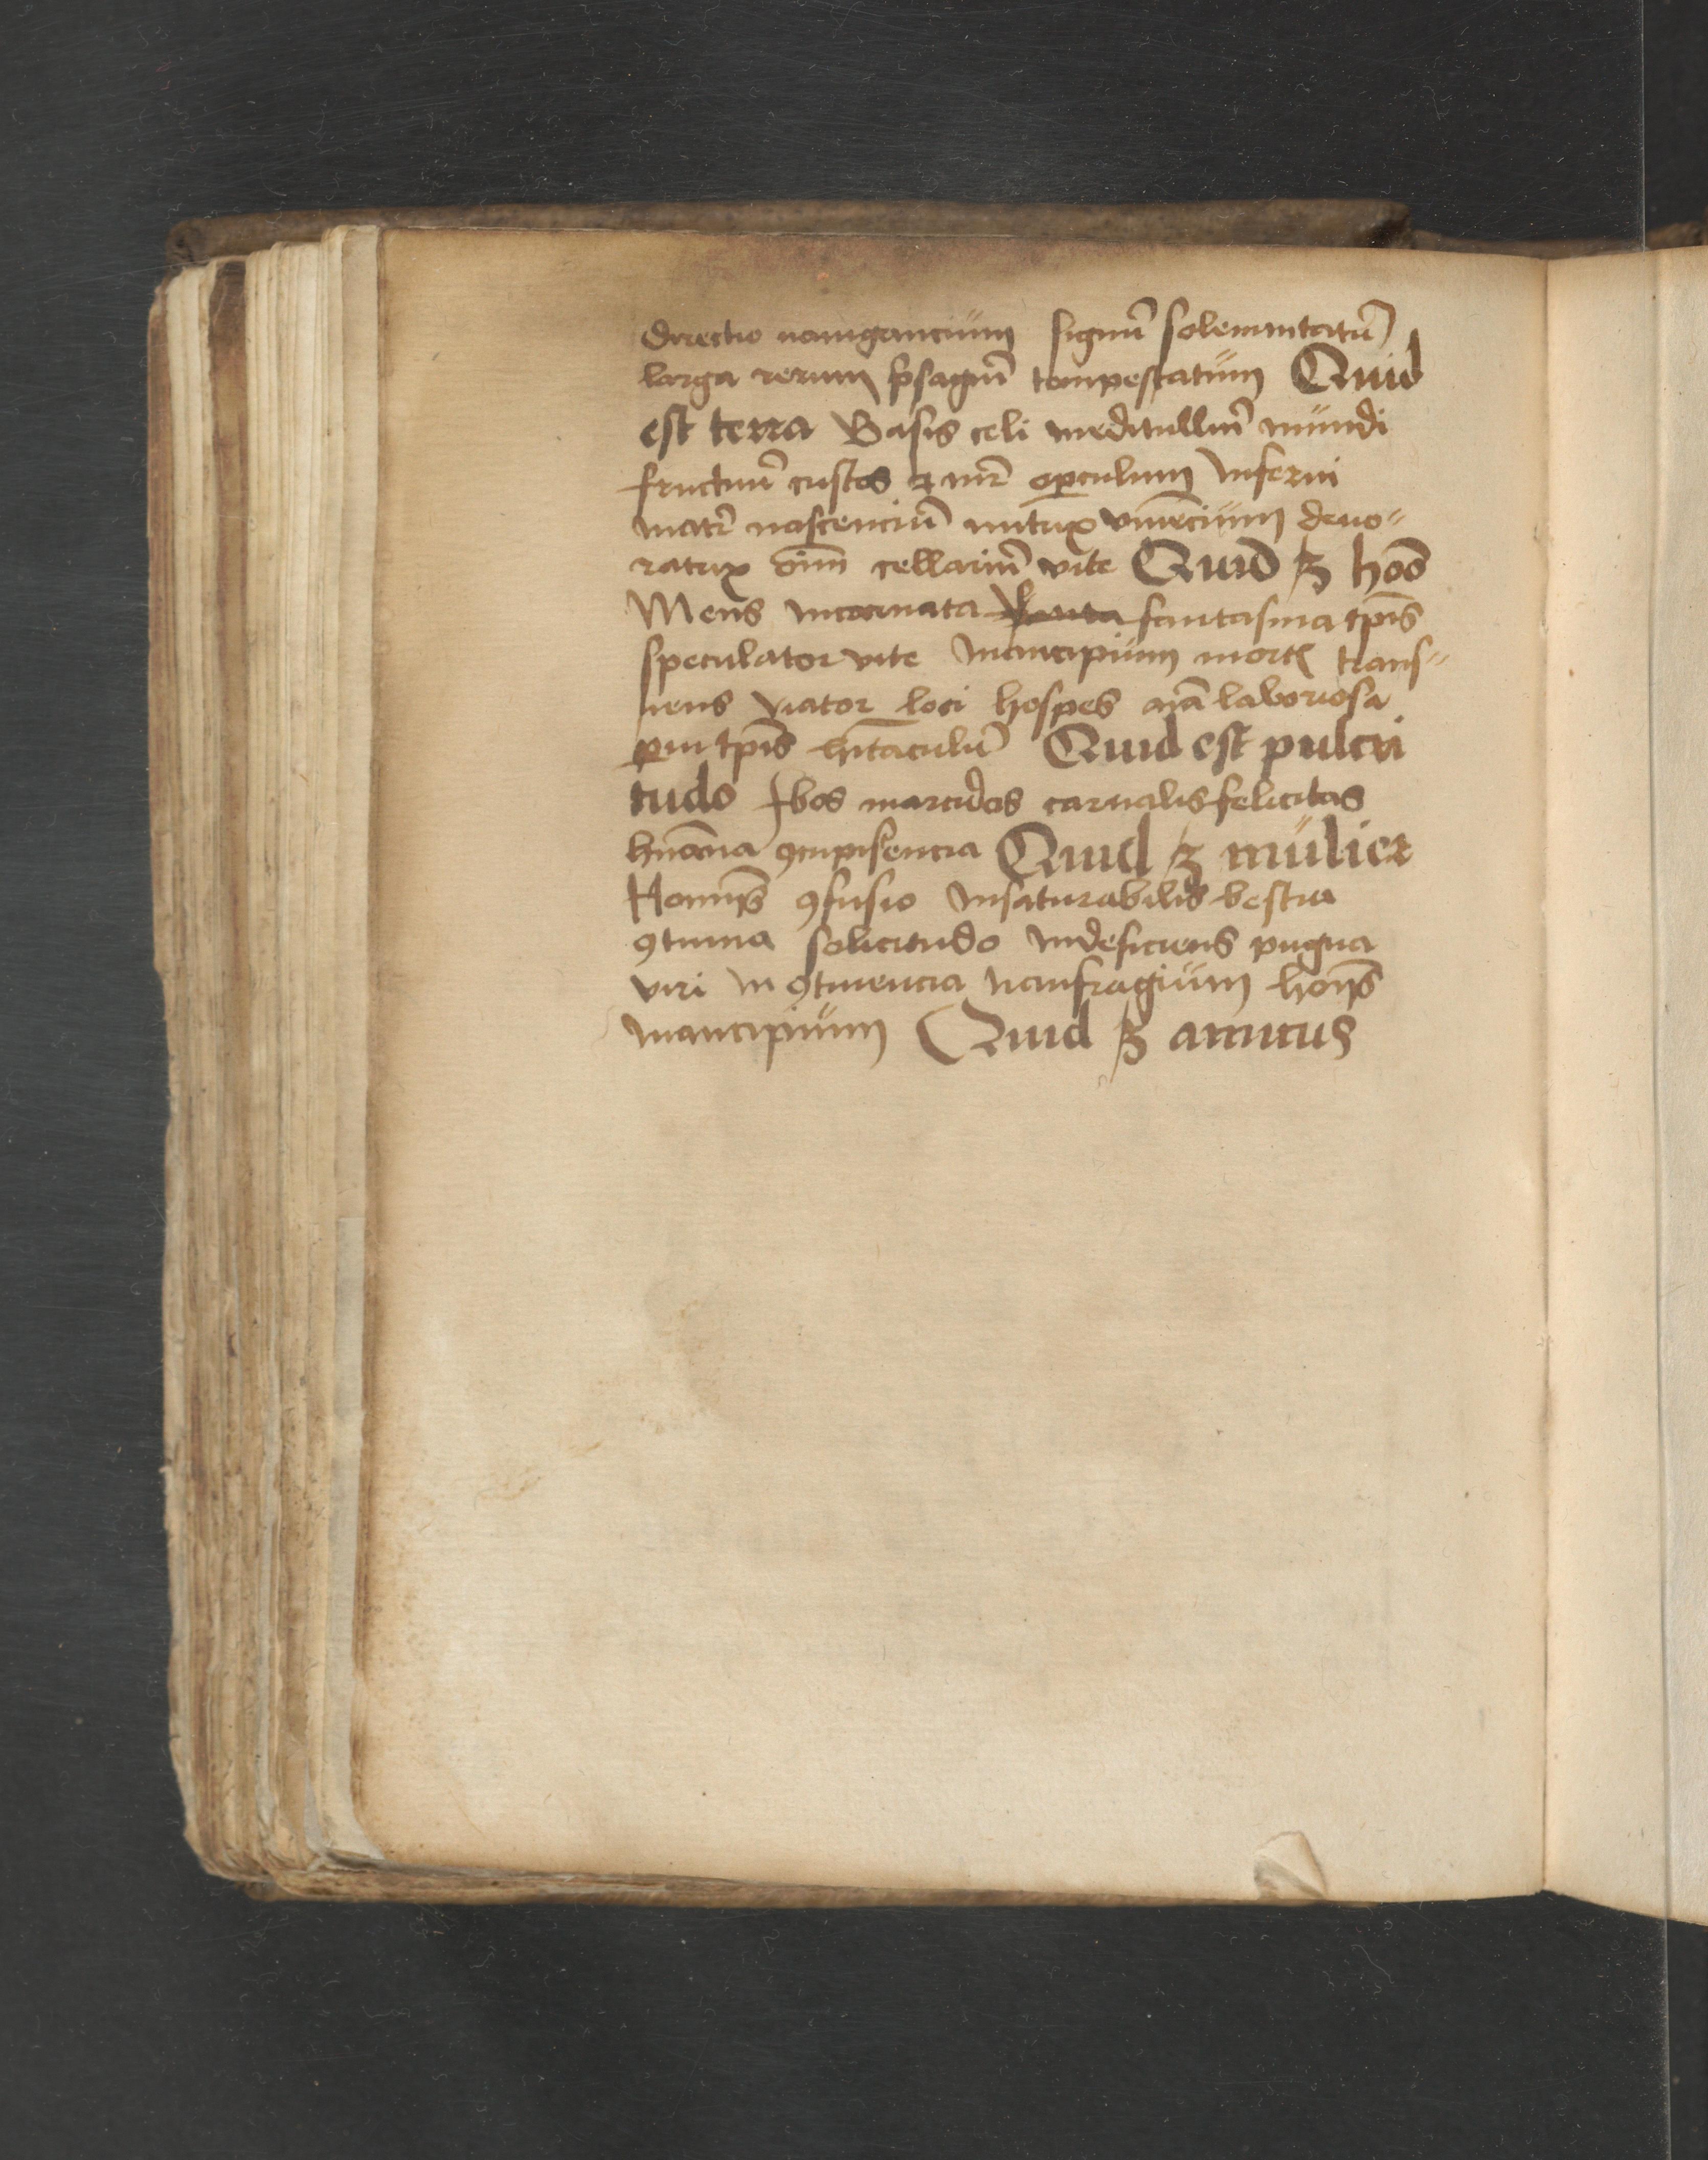 directio nauigancium signū solemnitatū
larga rerum p̄sagiū tempestatum Quid
est terra Basis celi meditulliū mundi
fructuū custos ⁊ mr̄ oꝑculum Inferni
mater nascenciū nutrix viuēcium deuo⸗
ratrix oīm cellariū vite Quid ꝫ hoō
Mens incarnata fantasma tp̄is
speculator vite mancipium mortꝭ trans⸗
iens viator loci hospes aīa laboriosa
ꝑui tp̄is hītaculū Quid est pulcri
tudo fbos marcidos carnalis felicitas
huōana ꝯcupisencia Quid ꝫ mulier
Homīs ꝯfusio Insaturabilis bestia
ꝯtinua solicitudo indeficiens pugna
viri in ꝯtinencia naufragium hoīs
mancipium Quid ꝫ amicus